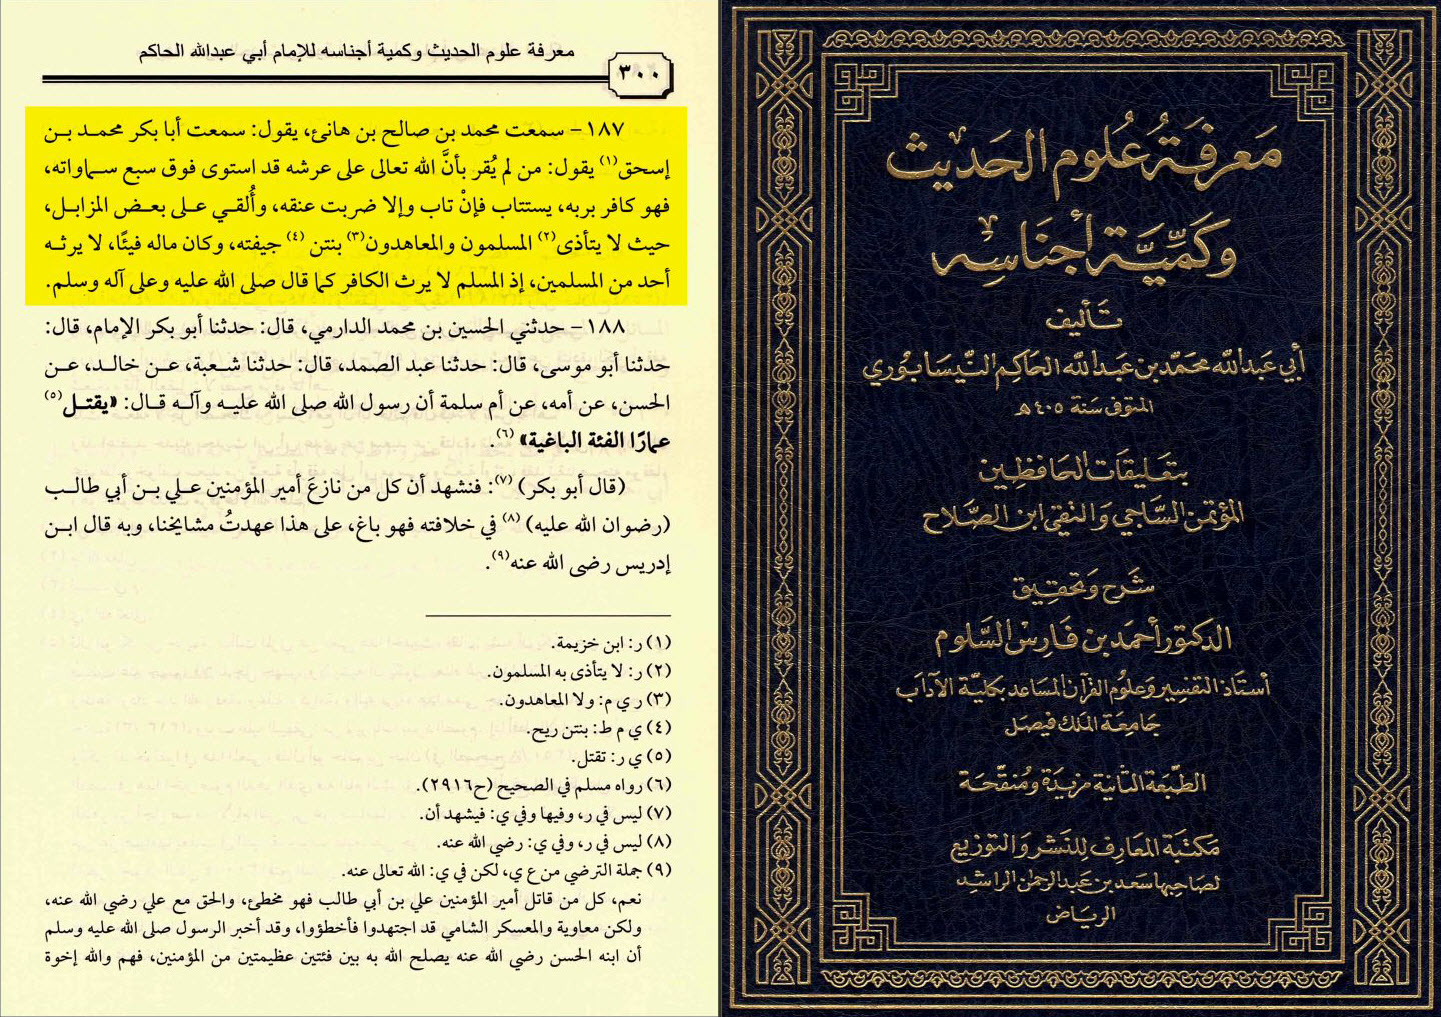 معرفة علوم الحديث وكمية أجناسه للإمام أبي عبدالله الحاكم
٣٠٠
١٨٧- سمعت محمد بن صالح بن هانئ، يقول: سمعت أبا بكر محمد بن
إسحق(١) يقول: من لم يُقر بأنَّ الله تعالى على عرشه قد استوى فوق سبع سماواته،
فهو كافر بربه، يستتاب فإنْ تاب وإلا ضربت عنقه، وأُلقي على بعض المزابل،
حيث لا يتأذى(٢) المسلمون والمعاهدون(٣) بنتن (٤) جيفته، وكان ماله فيئًا، لا يرثه
أحد من المسلمين، إذ المسلم لا يرث الكافر كما قال صلى الله عليه وعلى آله وسلم.
١٨٨- حدثني الحسين بن محمد الدارمي، قال: حدثنا أبو بكر الإمام، قال:
حدثنا أبو موسى، قال: حدثنا عبد الصمد، قال: حدثنا شعبة، عن خالد، عن
الحسن، عن أمه، عن أم سلمة أن رسول الله صلى الله عليه وآله قال: «يقتل(٥)
عمارًا الفئة الباغية» (٦).
(قال أبو بكر) (٧): فنشهد أن كل من نازعَ أمير المؤمنين علي بن أبي طالب
(رضوان الله عليه) (٨) في خلافته فهو باغ، على هذا عهدتُ مشايخنا، وبه قال ابن
إدريس رضى الله عنه(٩).
(١) ر: ابن خزيمة.
(٢) ر: لا يتأذى به المسلمون.
(٣) ر ي م: ولا المعاهدون.
(٤) ي م ط: بنتن ريح.
(٥) ي ر: تقتل.
(٦) رواه مسلم في الصحيح (ح٢٩١٦).
(٧) ليس في ر، وفيها وفي ي: فيشهد أن.
(٨) ليس في ر، وفي ي: رضي الله عنه.
(٩) جملة الترضي من ع ي، لكن في ي: الله تعالى عنه.
نعم، كل من قاتل أمير المؤمنين علي بن أبي طالب فهو مخطئ، والحق مع علي رضي الله عنه،
ولكن معاوية والمعسكر الشامي قد اجتهدوا فأخطؤوا، وقد أخبر الرسول صلى الله عليه وسلم
أن ابنه الحسن رضي الله عنه يصلح الله به بين فئتين عظيمتين من المؤمنين، فهم والله إخوة
مَعرفَة عُلوم الحَديث
وكمِّيَّة أجنَاسِه
تأليف
أبي عَبد الله محمّد بن عَبد الله الحَاكِم النَّيسَابُوري
المتوفى سَنة ٤٠٥ هـ
بتَعليقَات الحَافِظَين
المؤتمن السَّاجي والتقي ابن الصَّلاح
شَرح وَتحقيق
الدكتور أحمَد بن فَارِس السَّلوم
أستاذ التفسِير وعُلوم القرآن المسَاعد بكليَّة الآدَاب
جَامعَة الملك فَيصَل
الطّبعَة الثّانية مزيدَة ومُنقّحَة
مَكتَبة المعَارف للنَشر والتوزيع
لصَاحبهَا سَعد بن عَبد الرحمٰن الراشِد
الريَاض